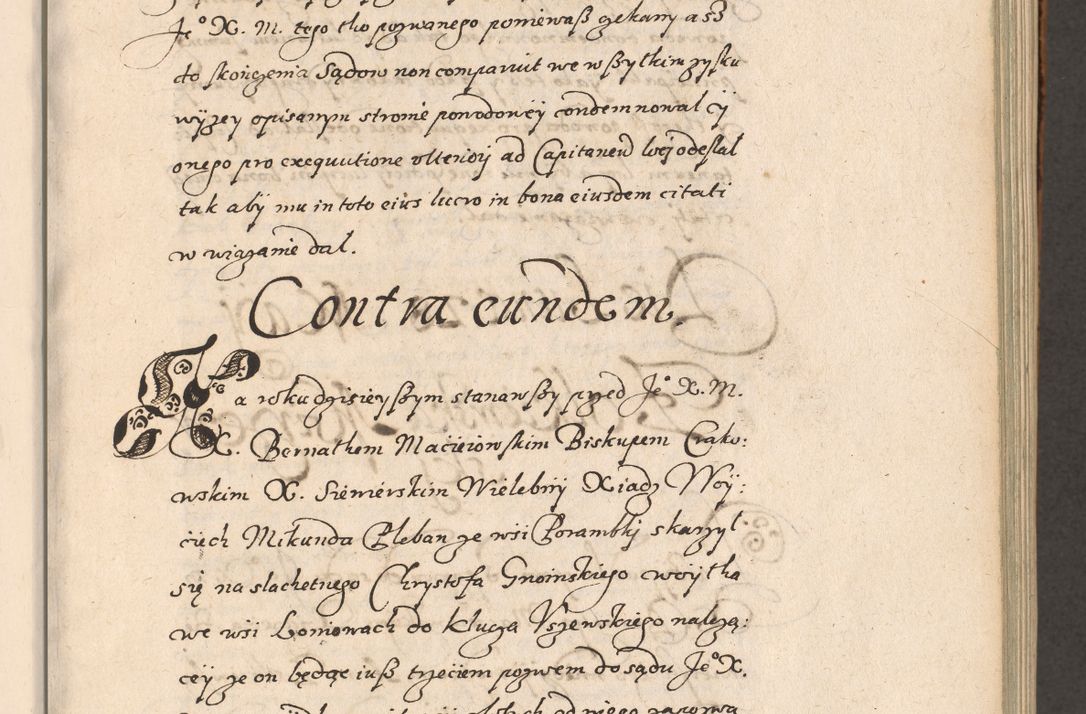 Jeº X. M. tego tho pozwanego poniewaß czekany asz
do skończenia Sądow non comparuit we wßytkim zysku
wyzey opisanym stronie powodowey condemnował ÿ
onego pro exequutione ulteriorj ad Capitaneu Locj odesłał
tak abÿ mu in toto eius lucro in bona eiusdem citati
w wiązanie dał.
Contra eundem.
Ta roku dzisieyßym stanawßy przed Jeº X. M.
X. Bernathem Macieiowskim Biskupem Crako:
wskim X. Siewierskim Wielebny Xiądz Woÿ:
ciech Mikunda Pleban ze wsi Porambkj skarzył
się na slachetnego Chrystofa Gnoinskiego woytha
we wsi Łoniowach do klucza Uszewskiego należą:
cey ze on będąc iuß trzeciem pozwem do sądu Jeº X.